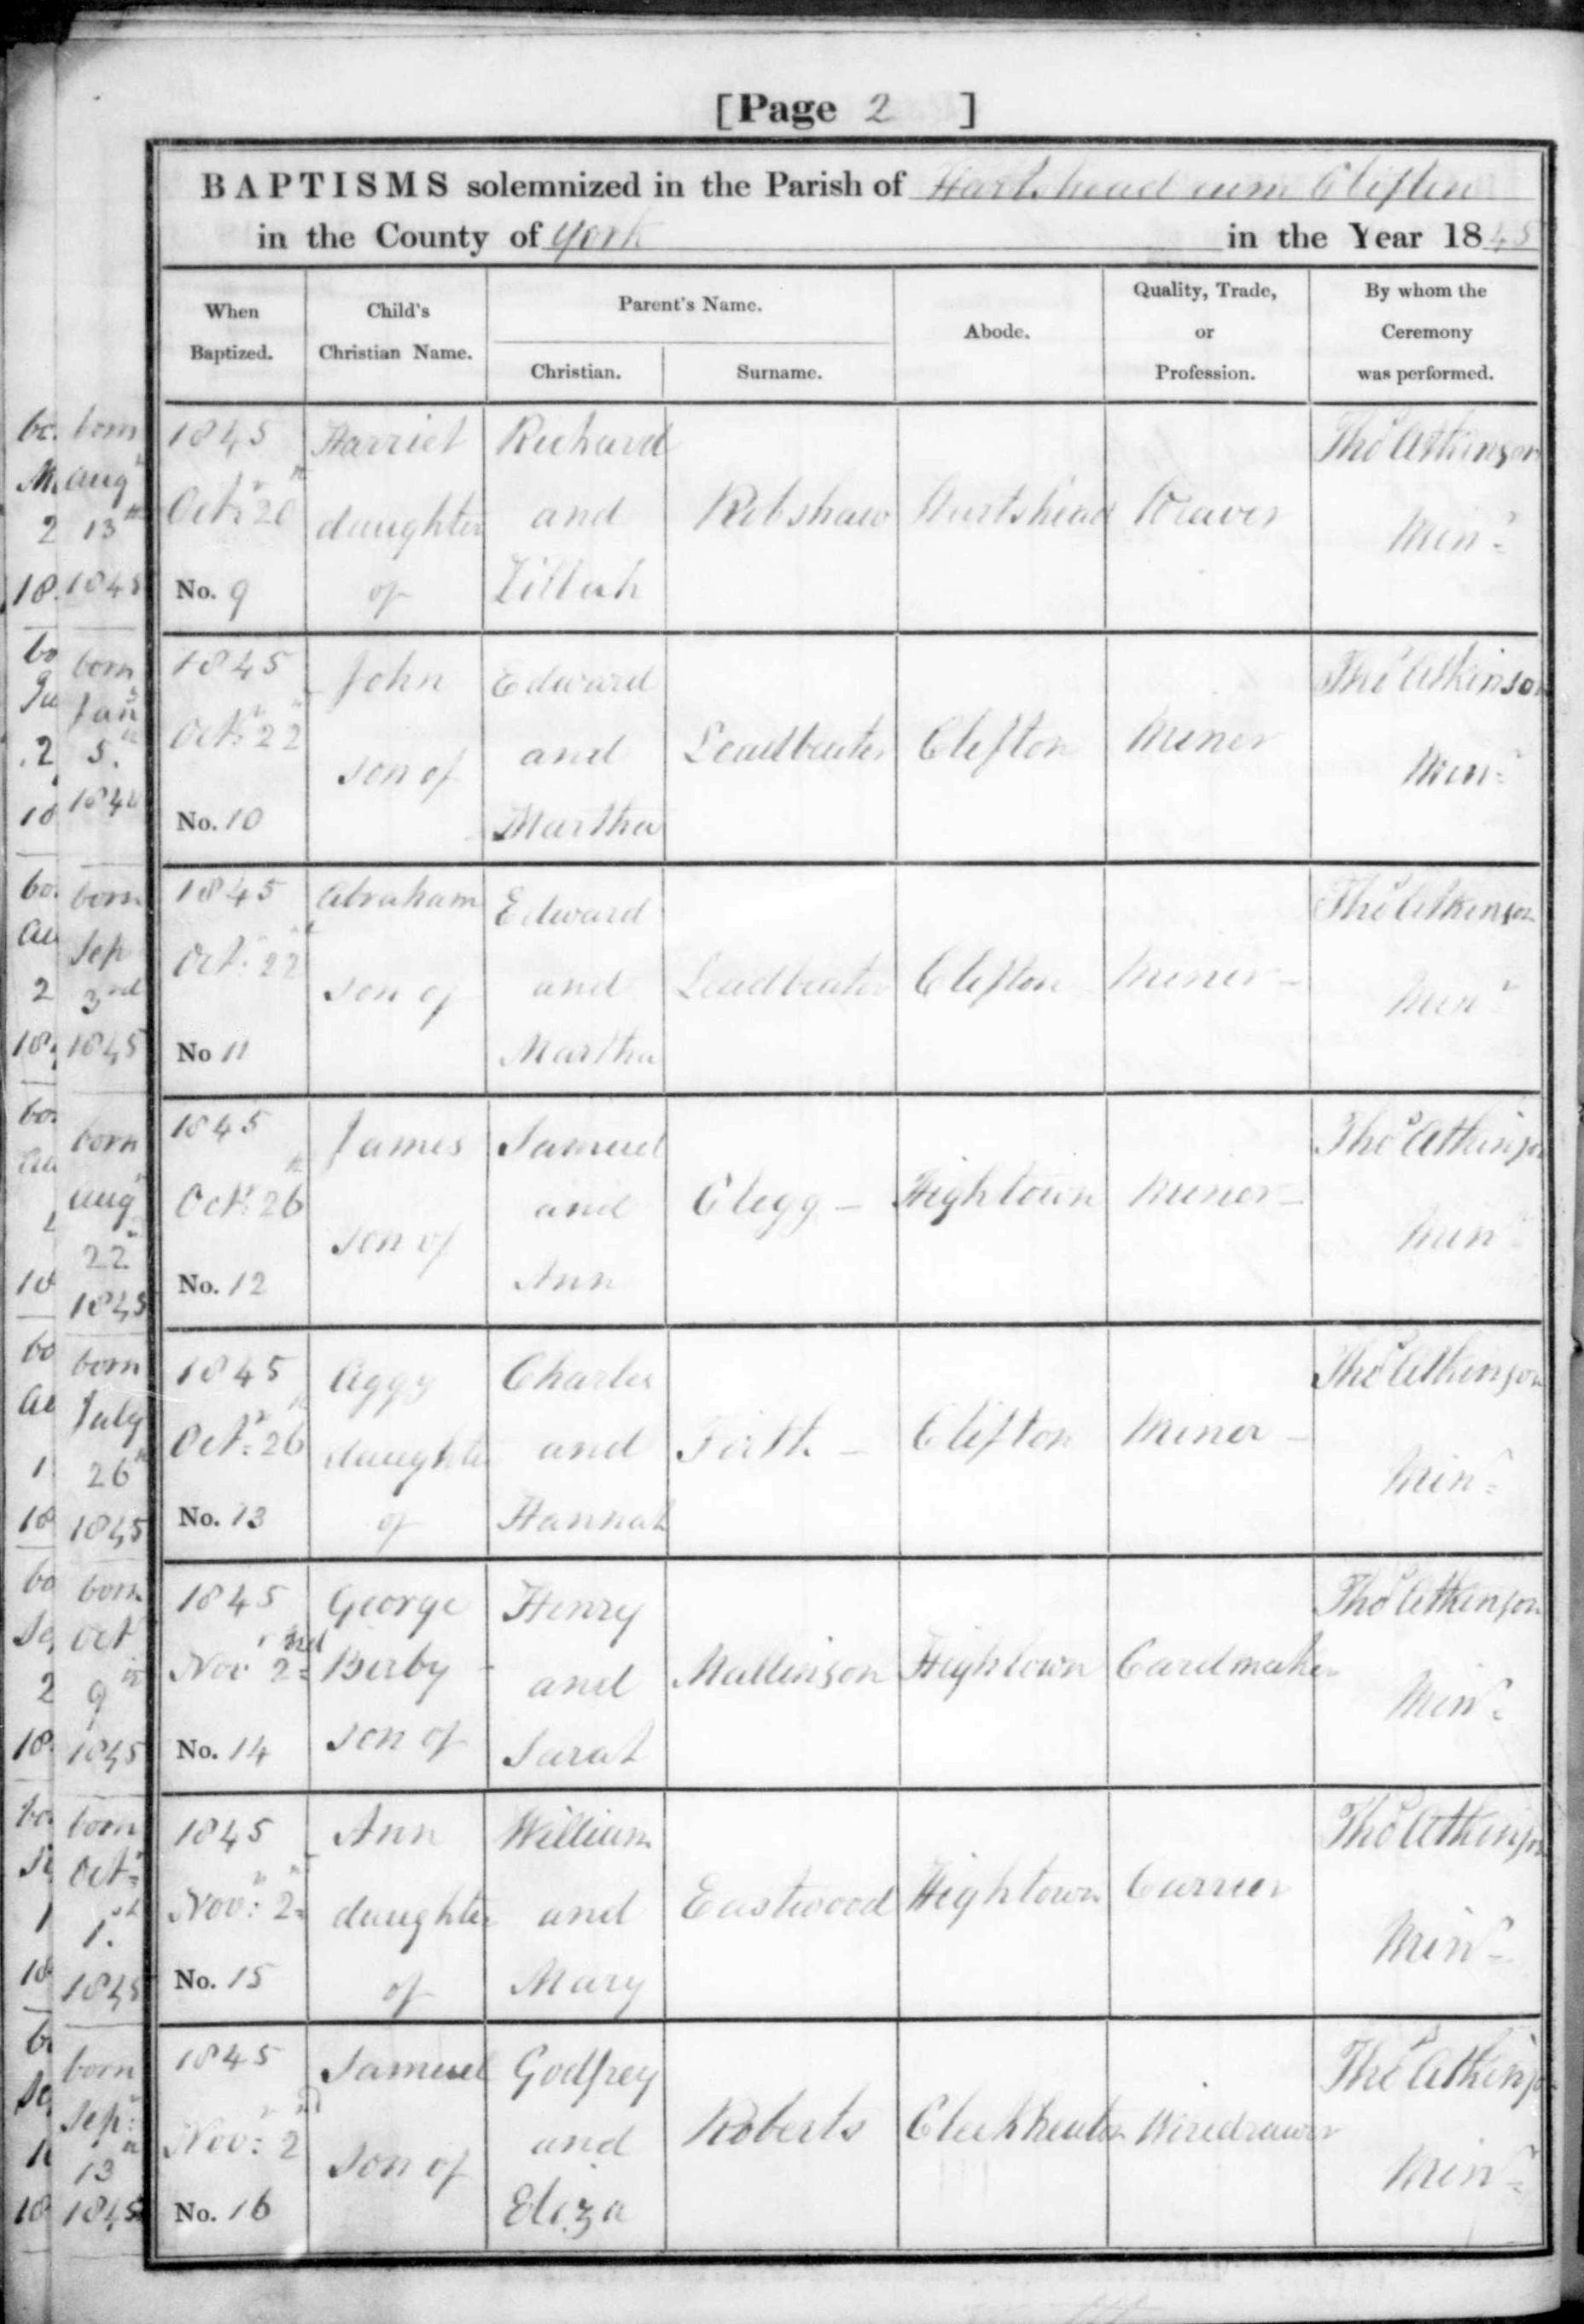 [Page 2 ]
BAPTISMS solemnized in the Parish of Hartshead cum Clifton
in the County of York in the Year 1845
When Baptized.
Child's Christian Name.
Parent's Name.
Christian.
Surname.
Abode.
Quality, Trade, or Profession.
By whom the Ceremony was performed.
born Augt 13th 1845
1845 Octr 20th No. 9
Harriet daughter of
Richard and Zillah
Robshaw
Hartshead
Weaver
Thos Atkinson Minr
born Jany 5th
1845 Octr 22 No. 10
John son of
Edward and Martha
Leadbeater
Clifton
Miner
Thos Atkinson Minr
born Sep 3rd 1845
1845 Oct: 22 No 11
Abraham son of
Edward and Martha
Leadbeater
Clifton
Miner
Thos Atkinson Minr
born Aug 22 1845
1845 Octr 26th No. 12
James son of
Samuel and Ann
Clegg
Hightown
Miner
Thos Atkinson Minr
born July 26th 1845
1845 Octr: 26th No. 13
Aggy daughter of
Charles and Hannah
Firth
Clifton
Miner
Thos Atkinson Minr
born Oct 9th 1845
1845 Novr 2nd No. 14
George Birby son of
Henry and Sarah
Mallinson
Hightown
Cardmaker
Thos Atkinson Minr
born Octr 1st 1845
1845 Novr: 2 No. 15
Ann daughter of
William and Mary
Eastwood
Hightown
Carrier
Thos Atkinson Minr
born Sep: 13th 1845
1845 Novr: 2d No. 16
Samuel son of
Godfrey and Eliza
Roberts
Cleckheaton
Wiredrawer
Thos Atkinson Minr